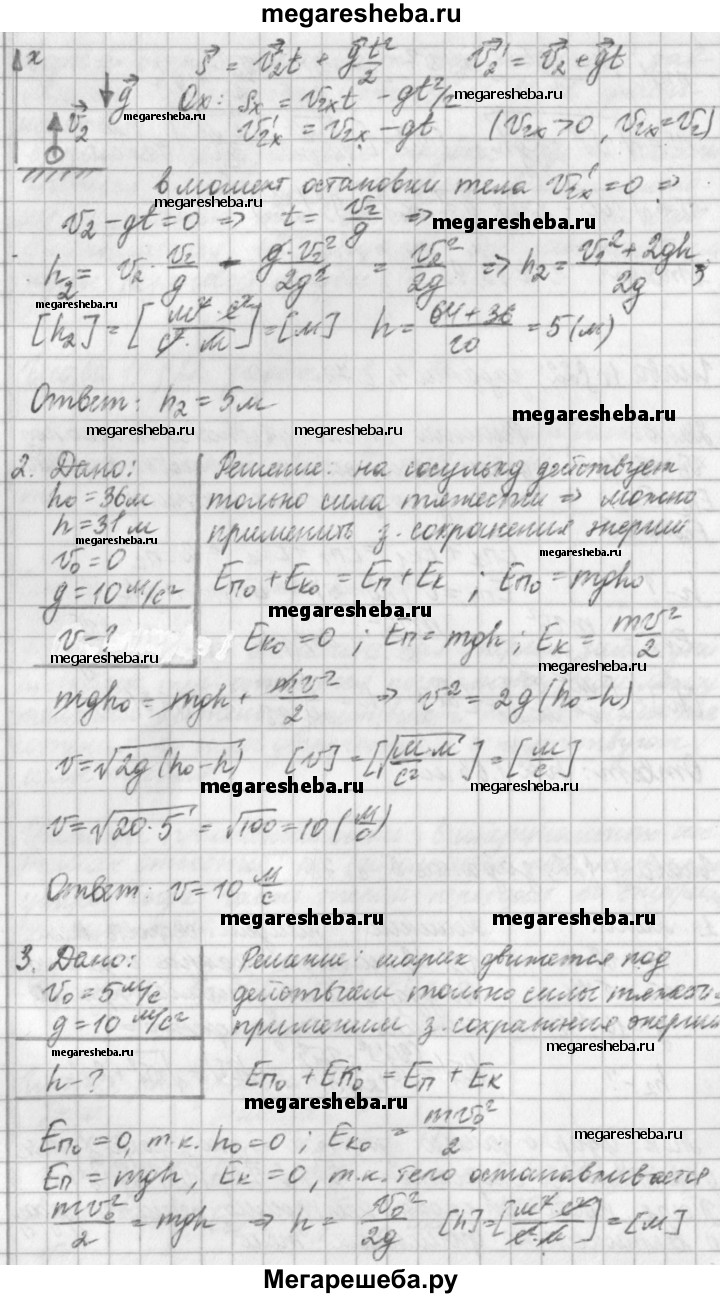 megaresheba.ru
x s⃗ = v⃗₂t + g⃗t²/2 v⃗₂' = v⃗₂ + g⃗t
g⃗ Ox: sₓ = v₂ₓt - gt²/2 megaresheba.ru
megaresheba.ru
v⃗₂ v₂ₓ' = v₂ₓ - gt (v₂ₓ > 0, v₂ₓ = v₂)
в момент остановки тела v₂ₓ' = 0 ⇒
megaresheba.ru
v₂ - gt = 0 ⇒ t = v₂/g ⇒ megaresheba.ru
h₂ = v₂·v₂/g - g·v₂²/2g² = v₂²/2g ⇒ h₂ = (v₁² + 2gh)/2g ;
megaresheba.ru megaresheba.ru
[h₂] = [м²·с²/с²·м] = [м] h = (64+36)/20 = 5(м)
Ответ: h₂ = 5м megaresheba.ru
megaresheba.ru megaresheba.ru megaresheba.ru
2. Дано: Решение: на сосульку действует
h₀ = 36м только сила тяжести ⇒ можно
h = 31 м применить з. сохранения энергии
megaresheba.ru megaresheba.ru
v₀ = 0 Eп₀ + Eк₀ = Eп + Eк ; Eп₀ = mgh₀
g = 10 м/с² megaresheba.ru
v - ? Eк₀ = 0 ; Eп = mgh ; Eк = mv²/2
megaresheba.ru megaresheba.ru
mgh₀ = mgh + mv²/2 ⇒ v² = 2g(h₀-h)
v = √2g(h₀-h) [v] = [√м·м/с²] = [м/с]
megaresheba.ru megaresheba.ru
v = √20·5 = √100 = 10 (м/с)
Ответ: v = 10 м/с
megaresheba.ru megaresheba.ru
3. Дано: Решение: шарик движется под
v₀ = 5 м/с действием только силы тяжести
g = 10 м/с² применим з. сохранения энергии
megaresheba.ru megaresheba.ru
h - ? Eп₀ + Eк₀ = Eп + Eк
megaresheba.ru
Eп₀ = 0, т.к. h₀ = 0 ; Eк₀ = mv₀²/2 megaresheba.ru
Eп = mgh, Eк = 0, т.к. тело останавливается
mv₀²/2 = mgh ⇒ h = v₀²/2g [h] = [м²·с²/с²·м] = [м]
Мегарешеба.ру